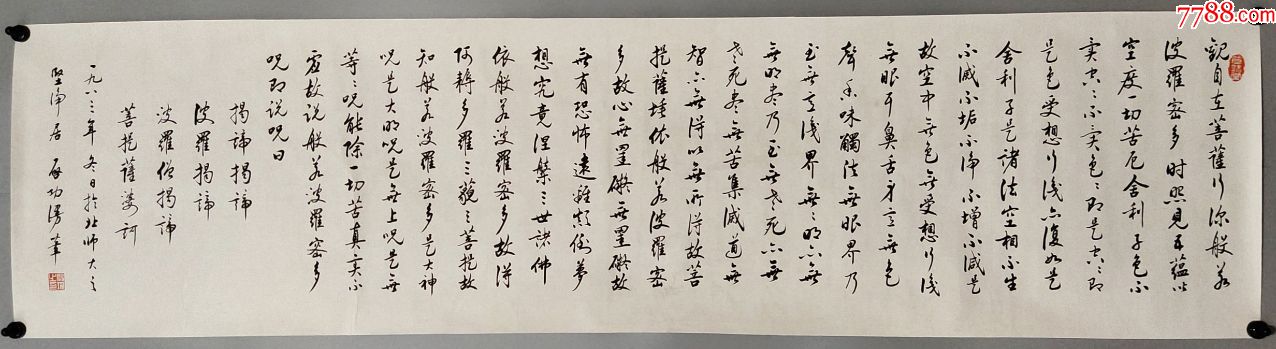 7788.com
觀自在菩薩行深般若
波羅密多時照見五蘊以
空度一切苦厄舍利子色不
异空〻不异色〻即是空〻即
是色受想行識亦復如是
舍利子是諸法空相不生
不滅不垢不淨不增不減是
故空中無色無受想行識
無眼耳鼻舌身意無色
聲香味觸法無眼界乃
至無意識界無〻明亦無
無明盡乃至無老死亦無
老死盡無苦集滅道無
智亦無得以無所得故菩
提薩埵依般若波羅密
多故心無罣礙無罣礙故
無有恐怖遠離顛倒夢
想究竟涅槃三世諸佛
依般若波羅密多故得
阿耨多羅三藐三菩提故
知般若波羅密多是大神
咒是大明咒是無上咒是無
等〻咒能除一切苦真實不
虛故說般若波羅密多
咒即說咒曰
揭諦揭諦
波羅揭諦
波羅僧揭諦
菩提薩婆訶
一九八三年冬日於北師大之
堅淨居 啟功